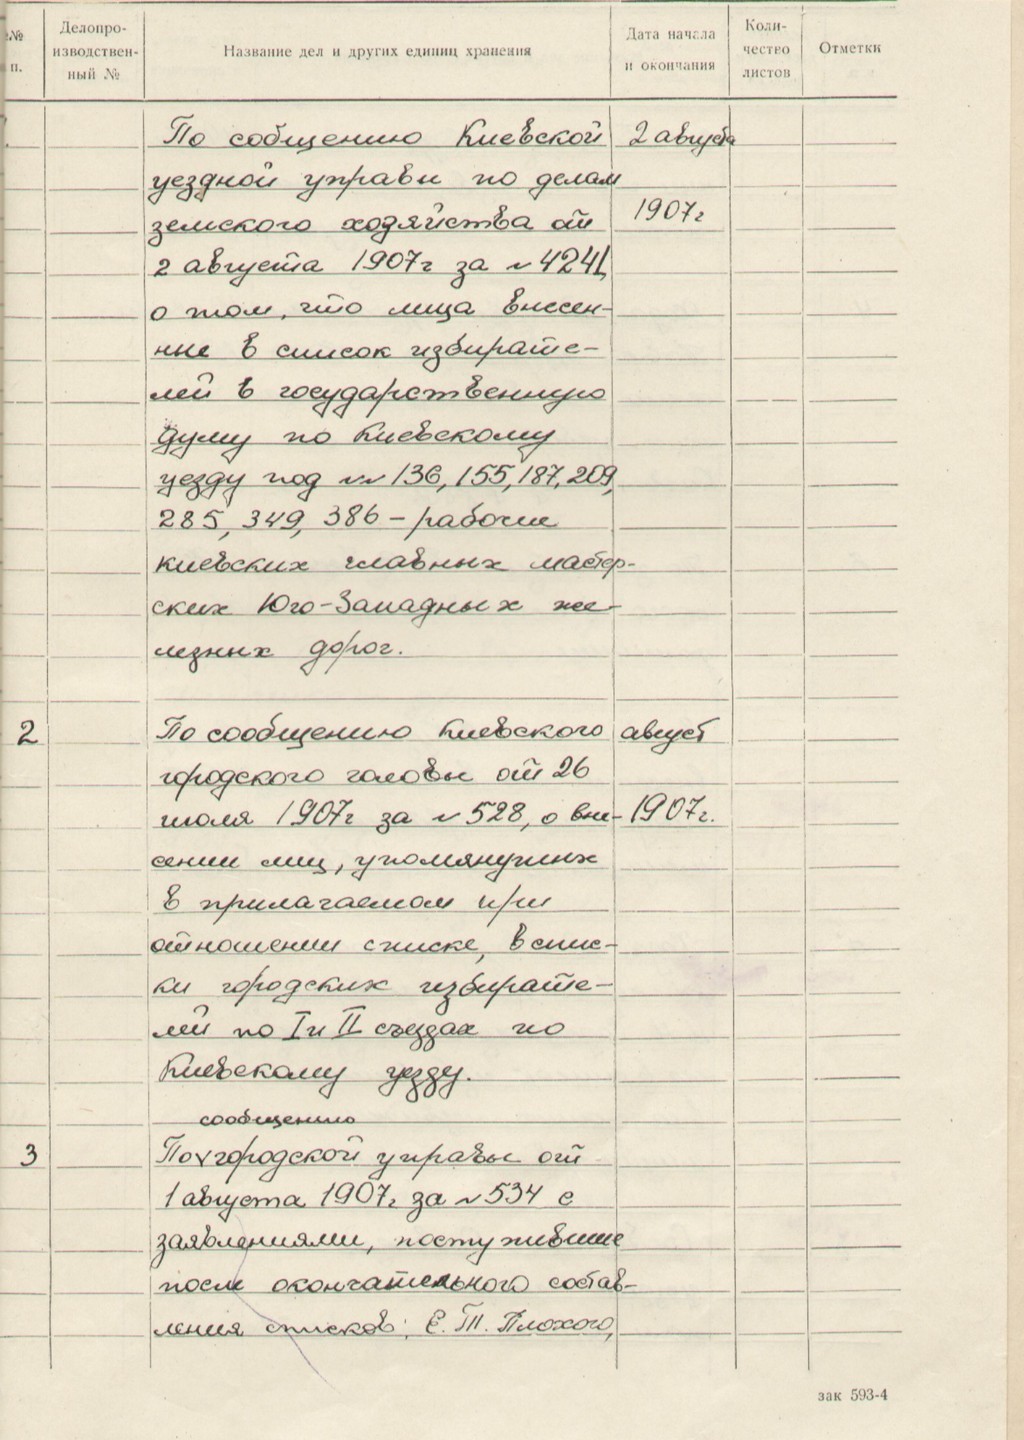 № п.
Делопро-
изводствен-
ный №
Название дел и других единиц хранения
Дата начала
и окончания
Коли-
чество
листов
Отметки
По собщению Киевской 2 августа
уездной управы по делам
земского ходяйства от 1907г
2 августа 1907г за №4241
о том, что лица внесен-
ные в список избирате-
лей в государственную
думу по Киевскому
уезду под №№ 136, 155, 187, 209,
285, 349, 386 – рабочие
киевских главных мастер-
ских Юго-Западных же-
лезных дорог.
2 По сообщению Киевского август
городского головы от 26
июля 1907г за №528, о вне- 1907г.
сении лиц, упомянутых
в прилагаемом при
отношении списке, в спис-
ки городских избирате-
лей по I и II съездах по
Киевскому уезду.
сообщению
3 По√городской управы от
1 августа 1907г за №534 с
заявлениями, поступившие
после окончательного состав-
ления списков: Е. Т. Плохого,
зак 593-4